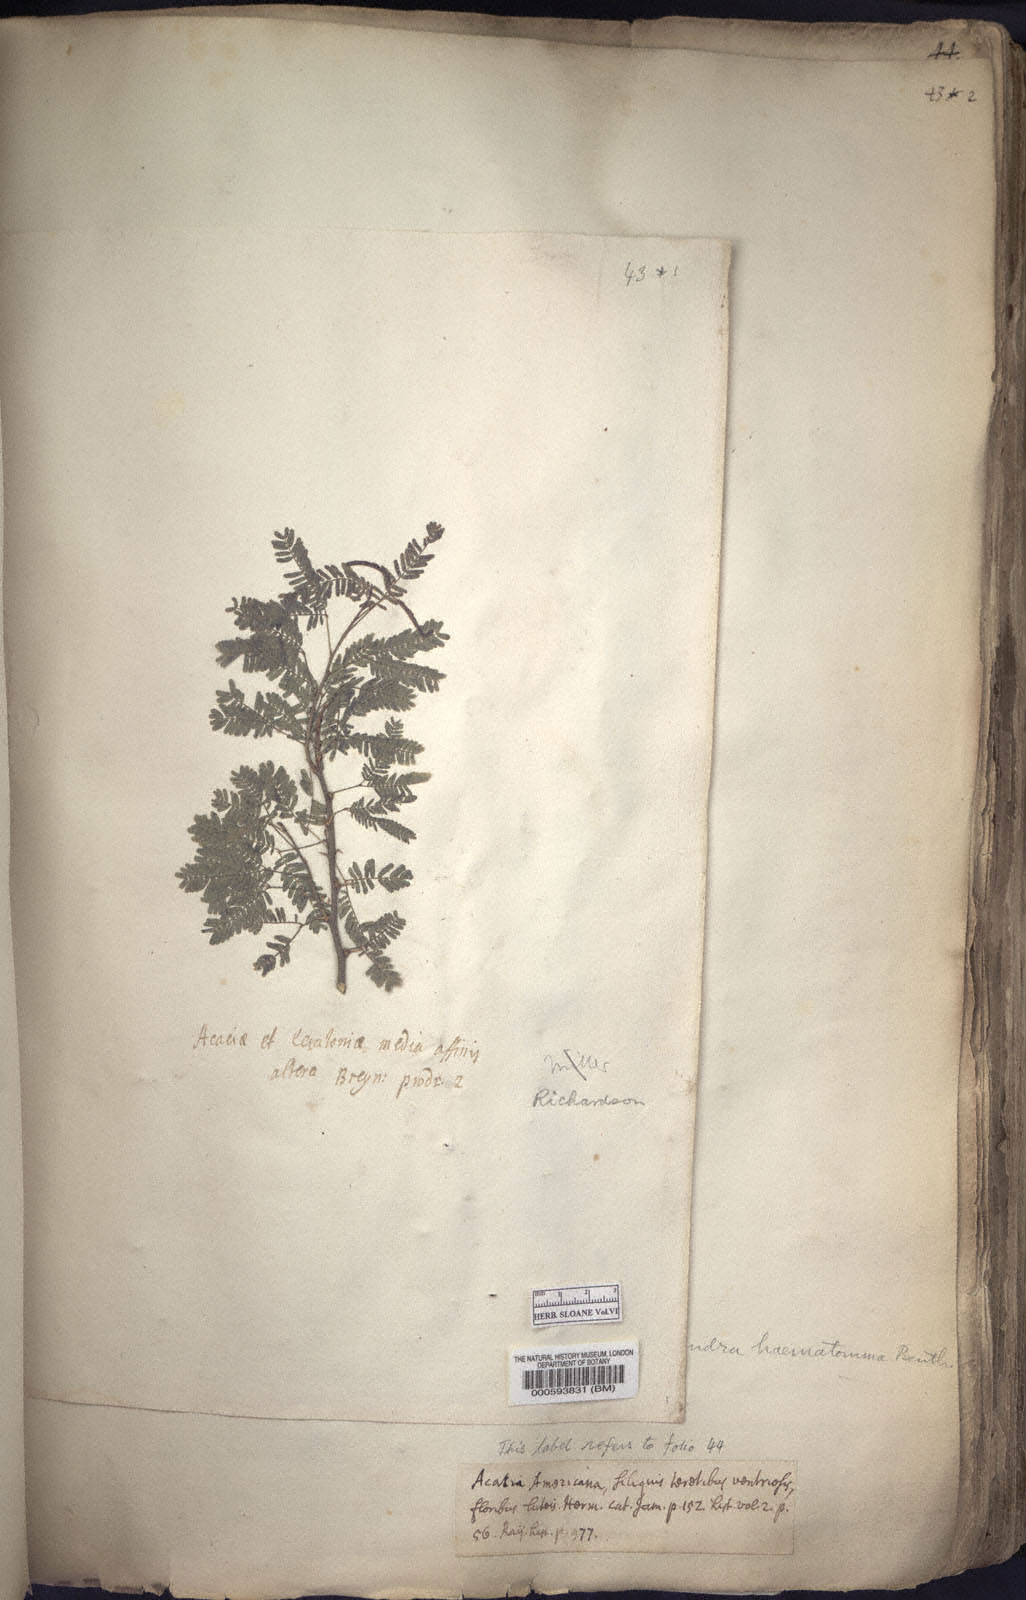 44.
43* 2
43 * 1
Acaciæ et Ceratoniæ media affinis
altera Breyn: prodr. 2
Miller
Richardson
mm 1 2 3
HERB. SLOANE Vol.VI
ndra haematomma Benth.
THE NATURAL HISTORY MUSEUM, LONDON
DEPARTMENT OF BOTANY
000593831 (BM)
This label refers to folio 44
Acacia Americana, siliquis teretibus ventriosis,
floribus luteis. Herm. cat. Jam. p. 152. hist. vol. 2. p.
56. Raij. hist. p. 977.